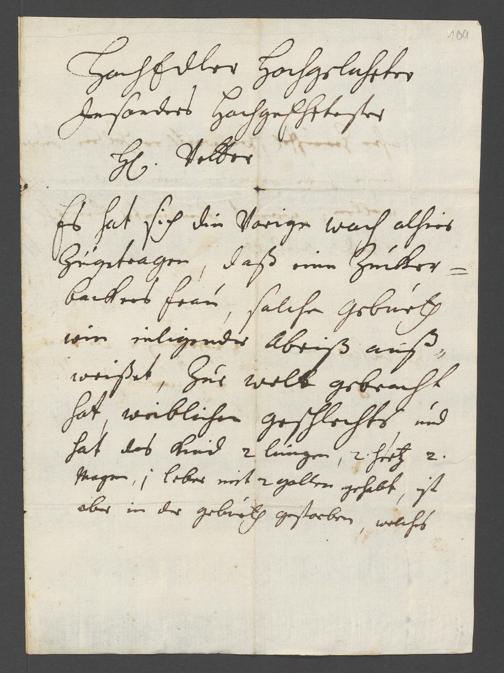 109
HochEdler Hochgelahrter
Insonders Hochgeehrtester
H. Vetter
Es hat sich die Vorige woch alhier
Zugetragen, daß eine Zucker=
backers frau, solche geburth
wie inligender Abriß auß„
weißet, Zur welt gebracht
hat, weiblichen geschlechts, und
hat das Kind 2 lungen, 2. hertz 2.
Magen, j leber mit 2 gallen gehabt, ist
aber in der geburth gestorben, welches